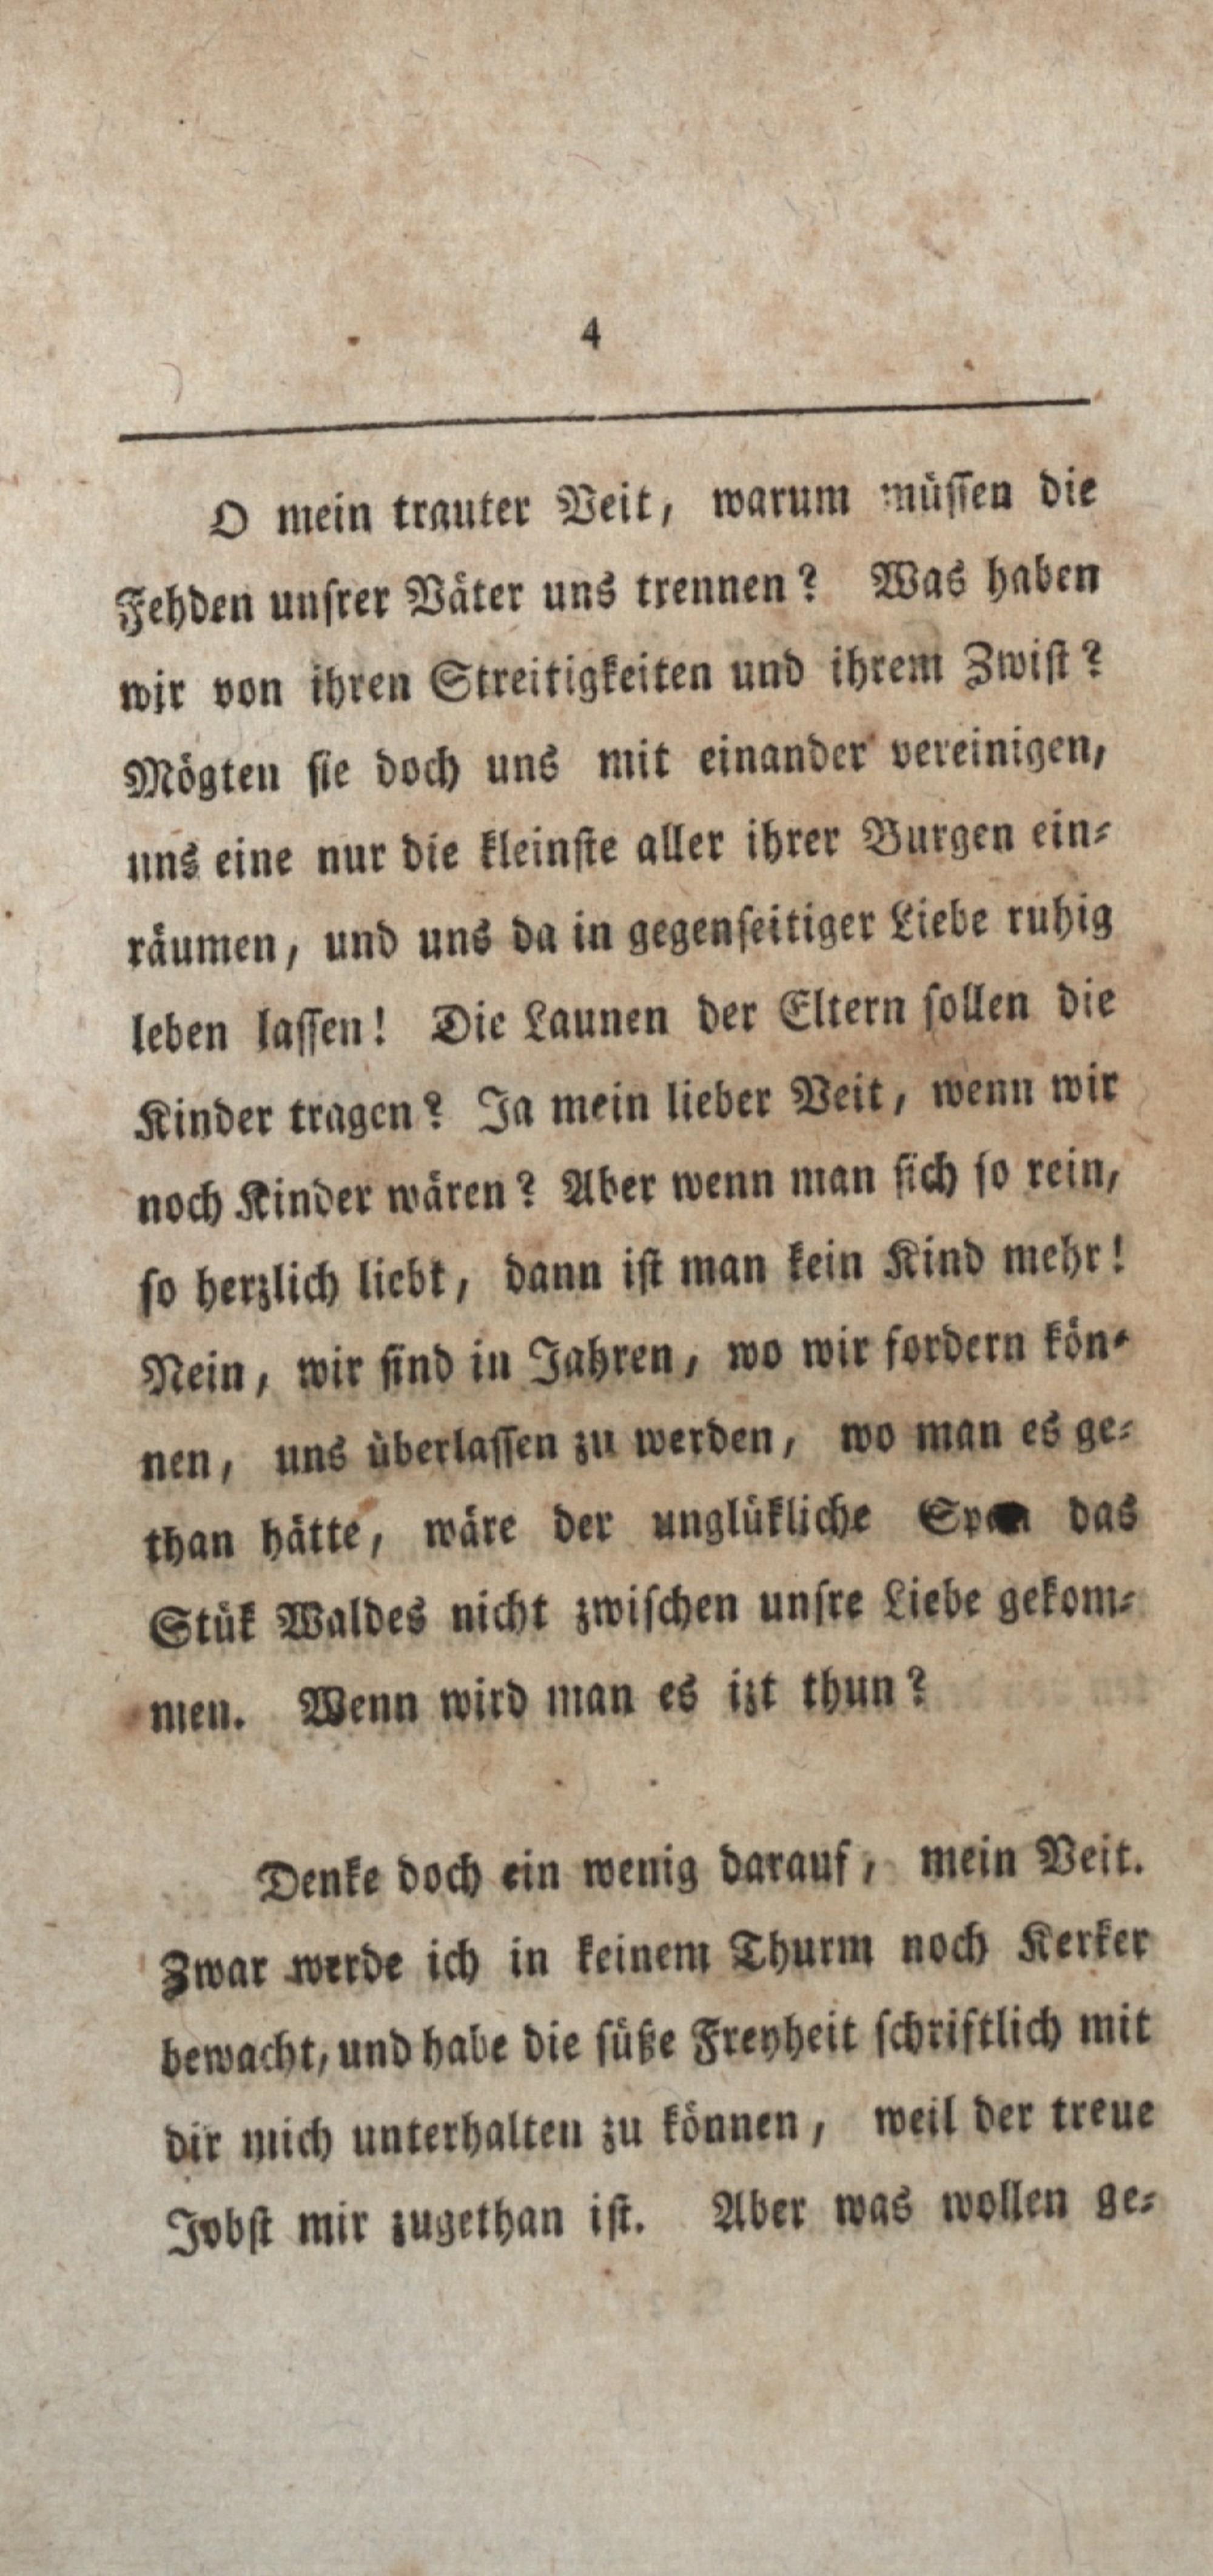 4
O mein trauter Veit, warum müssen die
Fehden unsrer Väter uns trennen? Was haben
wir von ihren Streitigkeiten und ihrem Zwist?
Mögten sie doch uns mit einander vereinigen,
uns eine nur die kleinste aller ihrer Burgen ein-
räumen, und uns da in gegenseitiger Liebe ruhig
leben lassen! Die Launen der Eltern sollen die
Kinder tragen? Ja mein lieber Veit, wenn wir
noch Kinder wären? Aber wenn man sich so rein,
so herzlich liebt, dann ist man kein Kind mehr!
Nein, wir sind in Jahren, wo wir fordern kön-
nen, uns überlassen zu werden, wo man es ge-
than hätte, wäre der unglükliche das
Stük Waldes nicht zwischen unsre Liebe gekom-
men. Wenn wird man es izt thun?
Denke doch ein wenig darauf, mein Veit.
Zwar werde ich in keinem Thurm noch Kerker
bewacht, und habe die süße Freyheit schriftlich mit
dir mich unterhalten zu können, weil der treue
Jobst mir zugethan ist. Aber was wollen ge-